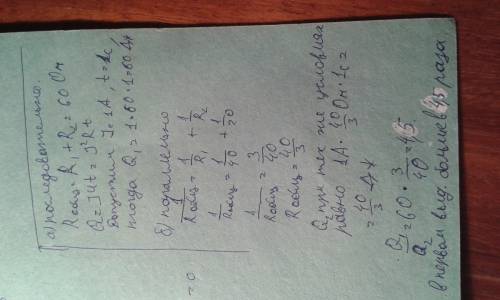 а) последовательно.
Rобщ = R₁ + R₂ = 60 Ом
Q = IUt = I²Rt
допустим I = 1А, t = 1с,
тогда Q₁ = 1·60·1 = 60 Дж
б) параллельно
1/Rобщ = 1/R₁ + 1/R₂
1/Rобщ = 1/40 + 1/20
1/Rобщ = 3/40
Rобщ = 40/3
Q₂ при тех же условиях
равно 1А · 40/3 Ом · 1с =
= 40/3 Дж
Q₁/Q₂ = 60 · 3/40 = 4,5
в первом выд. больше в 4,5 раза
= 0